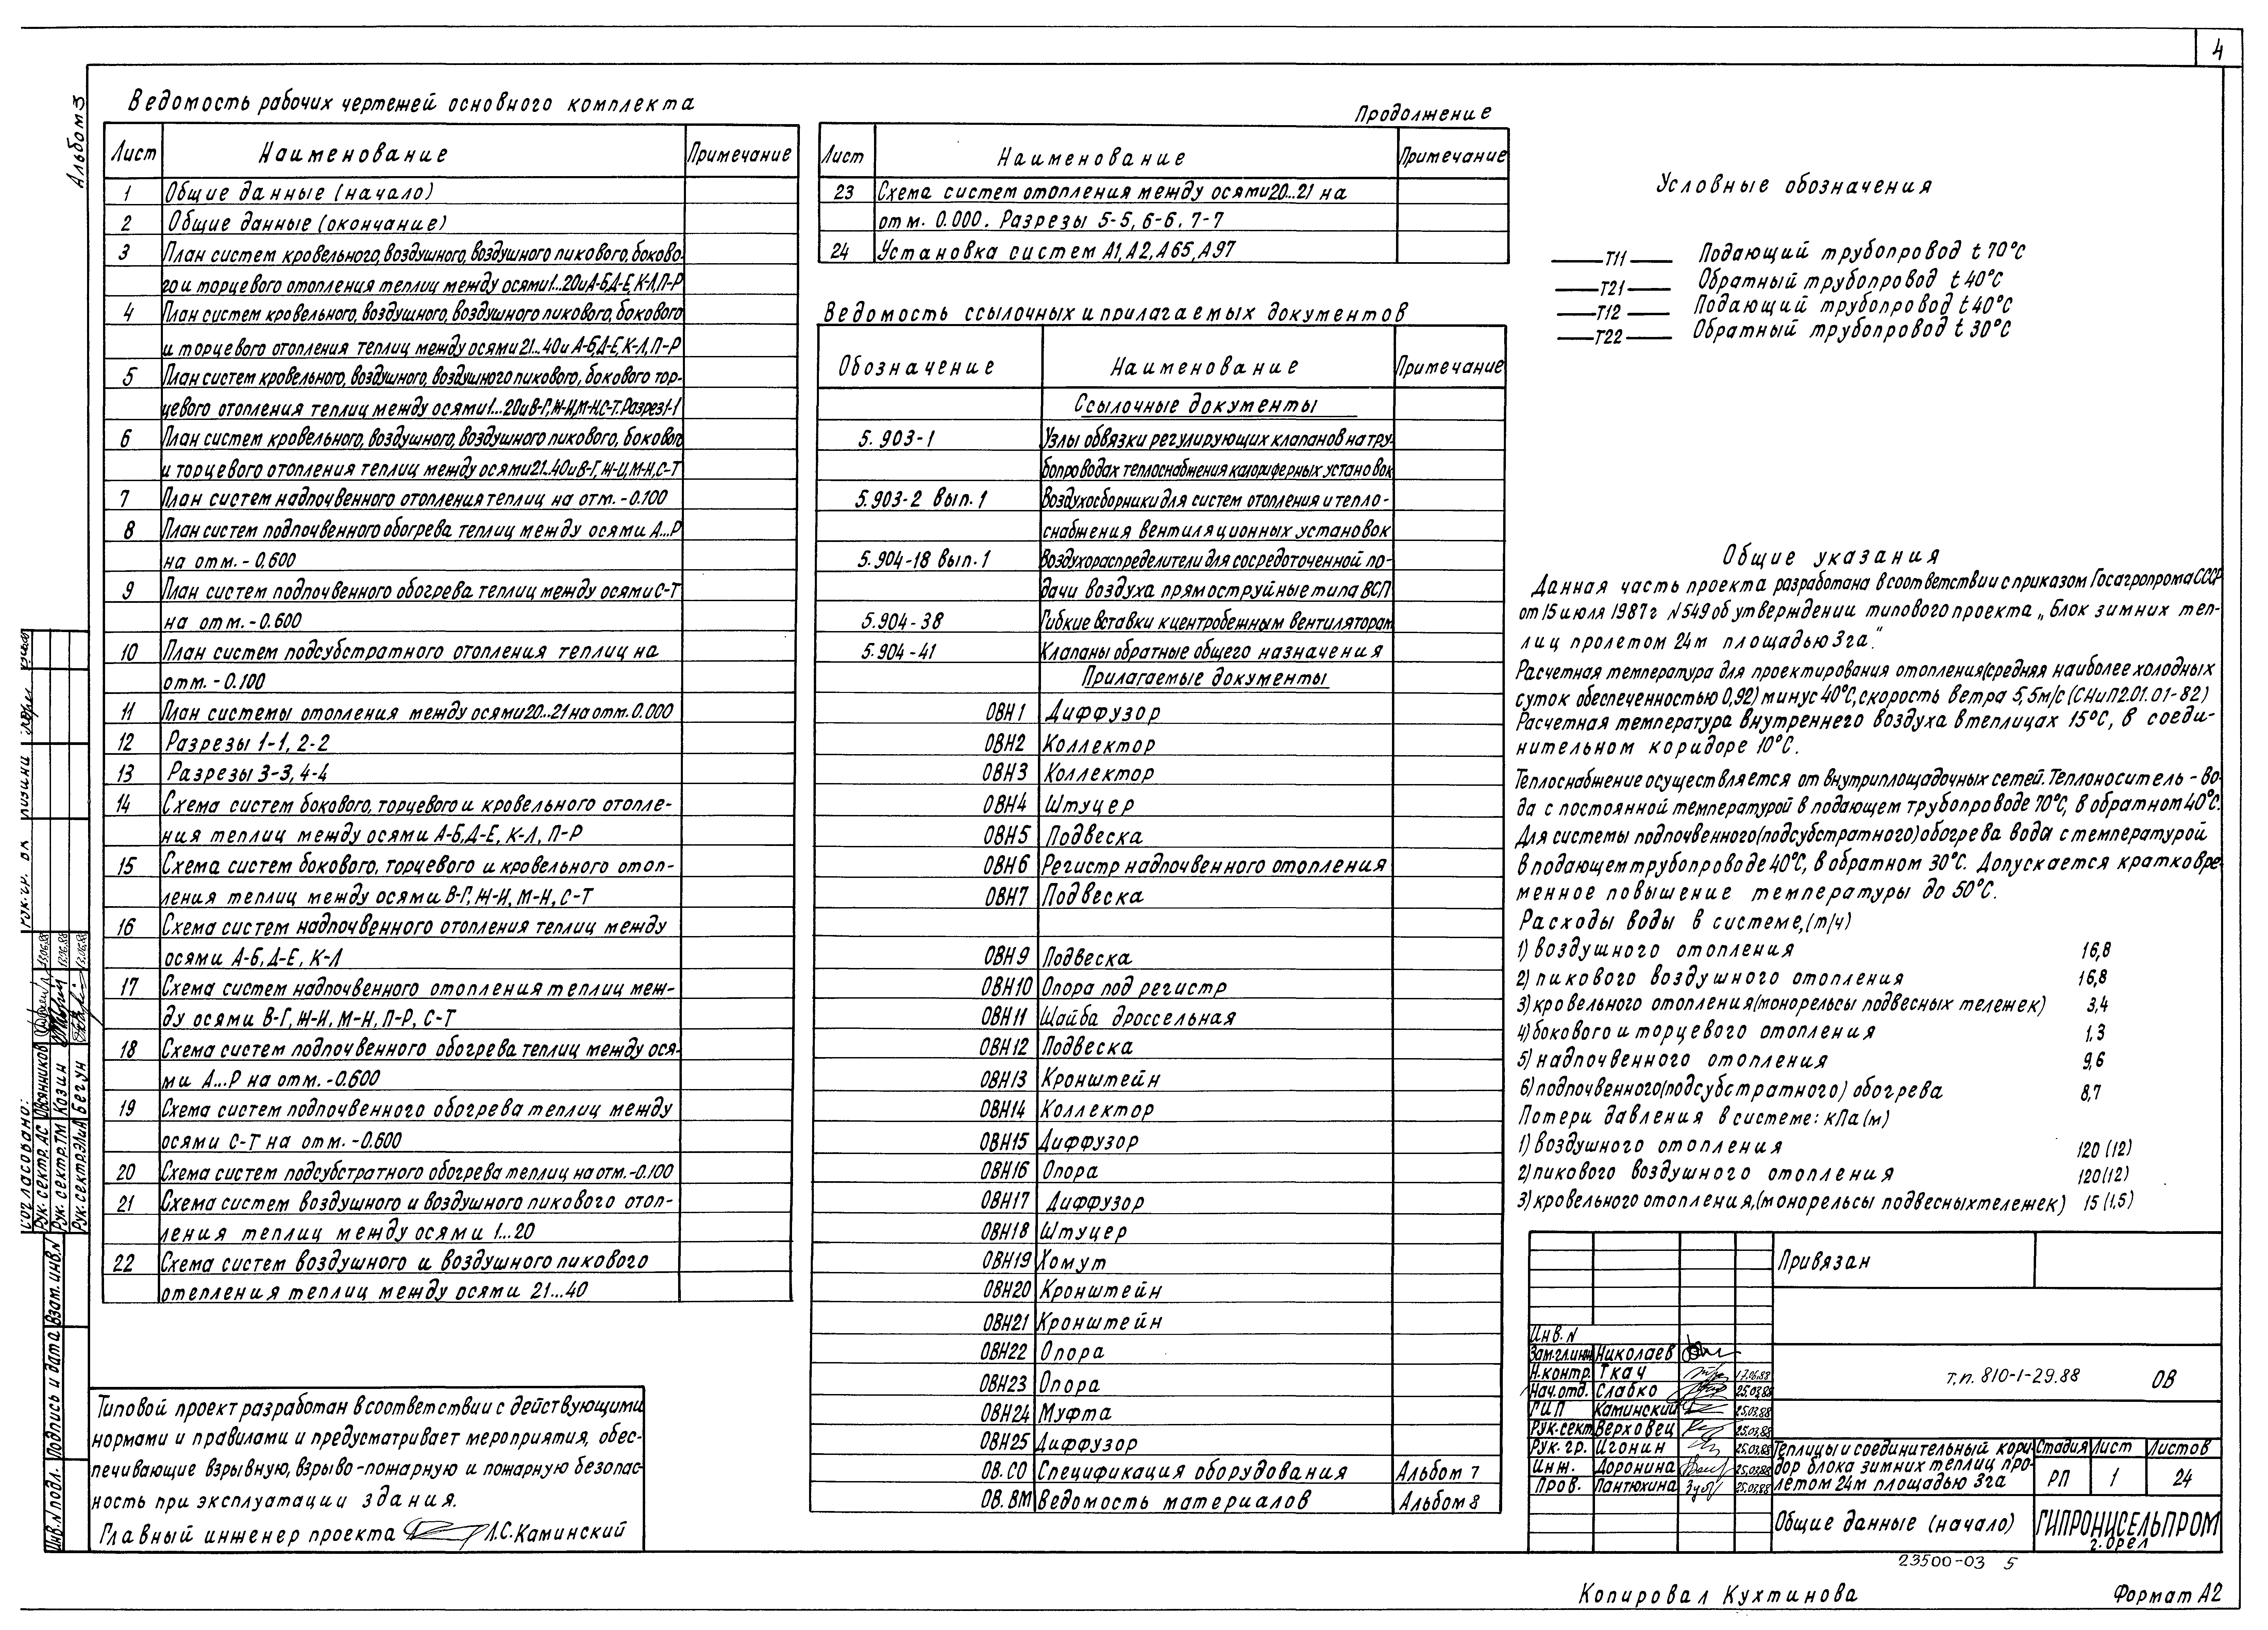 4
Альбом 3
Ведомость рабочих чертежей основного комплекта
Лист Наименование Примечание
1 Общие данные (начало)
2 Общие данные (окончание)
3 План систем кровельного, воздушного, воздушного пикового, боково-
го и торцевого отопления теплиц между осями 1...20 и А-Б, Д-Е, К-Л, П-Р
4 План систем кровельного, воздушного, воздушного пикового, бокового
и торцевого отопления теплиц между осями 21...40 и А-Б, Д-Е, К-Л, П-Р
5 План систем кровельного, воздушного, воздушного пикового, бокового тор-
цевого отопления теплиц между осями 1...20 и В-Г, Ж-И, М-Н, С-Т. Разрез 1-1
6 План систем кровельного, воздушного, воздушного пикового, бокового
и торцевого отопления теплиц между осями 21...40 и В-Г, Ж-И, М-Н, С-Т
7 План систем надпочвенного отопления теплиц на отм. -0.100
8 План систем подпочвенного обогрева теплиц между осями А...Р
на отм. -0,600
9 План систем подпочвенного обогрева теплиц между осями С-Т
на отм. -0.600
10 План систем подсубстратного отопления теплиц на
отм. -0.100
11 План системы отопления между осями 20...21 на отм. 0.000
12 Разрезы 1-1, 2-2
13 Разрезы 3-3, 4-4
14 Схема систем бокового, торцевого и кровельного отопле-
ния теплиц между осями А-Б, Д-Е, К-Л, П-Р
15 Схема систем бокового, торцевого и кровельного отоп-
ления теплиц между осями В-Г, Ж-И, М-Н, С-Т
16 Схема систем надпочвенного отопления теплиц между
осями А-Б, Д-Е, К-Л
17 Схема систем надпочвенного отопления теплиц меж-
ду осями В-Г, Ж-И, М-Н, П-Р, С-Т
18 Схема систем подпочвенного обогрева теплиц между ося-
ми А...Р на отм. -0.600
19 Схема систем подпочвенного обогрева теплиц между
осями С-Т на отм. -0.600
20 Схема систем подсубстратного обогрева теплиц на отм. -0.100
21 Схема систем воздушного и воздушного пикового отоп-
ления теплиц между осями 1...20
22 Схема систем воздушного и воздушного пикового
отепления теплиц между осями 21...40
Типовой проект разработан в соответствии с действующими
нормами и правилами и предусматривает мероприятия, обес-
печивающие взрывную, взрыво-пожарную и пожарную безопас-
ность при эксплуатации здания.
Главный инженер проекта Л.С. Каминский
Продолжение
Лист Наименование Примечание
23 Схема систем отопления между осями 20...21 на
отм. 0.000. Разрезы 5-5, 6-6, 7-7
24 Установка систем А1, А2, А65, А97
Ведомость ссылочных и прилагаемых документов
Обозначение Наименование Примечание
Ссылочные документы
5.903-1 Узлы обвязки регулирующих клапанов на тру-
бопроводах теплоснабжения калориферных установок
5.903-2 Вып. 1 Воздухосборники для систем отопления и тепло-
снабжения вентиляционных установок
5.904-18 Вып. 1 Воздухораспределители для сосредоточенной по-
дачи воздуха прямоструйные типа ВСП
5.904-38 Гибкие вставки к центробежным вентиляторам
5.904-41 Клапаны обратные общего назначения
Прилагаемые документы
ОВН1 Диффузор
ОВН2 Коллектор
ОВН3 Коллектор
ОВН4 Штуцер
ОВН5 Подвеска
ОВН6 Регистр надпочвенного отопления
ОВН7 Подвеска
ОВН9 Подвеска
ОВН10 Опора под регистр
ОВН11 Шайба дроссельная
ОВН12 Подвеска
ОВН13 Кронштейн
ОВН14 Коллектор
ОВН15 Диффузор
ОВН16 Опора
ОВН17 Диффузор
ОВН18 Штуцер
ОВН19 Хомут
ОВН20 Кронштейн
ОВН21 Кронштейн
ОВН22 Опора
ОВН23 Опора
ОВН24 Муфта
ОВН25 Диффузор
ОВ.СО Спецификация оборудования Альбом 7
ОВ.ВМ Ведомость материалов Альбом 8
Условные обозначения
Т11 Подающий трубопровод t 70°С
Т21 Обратный трубопровод t 40°С
Т12 Подающий трубопровод t 40°С
Т22 Обратный трубопровод t 30°С
Общие указания
Данная часть проекта разработана в соответствии с приказом Госагропрома СССР
от 15 июля 1987г N 549 об утверждении типового проекта „Блок зимних теп-
лиц пролетом 24м площадью 3га."
Расчетная температура для проектирования отопления (средняя наиболее холодных
суток обеспеченностью 0,92) минус 40°С, скорость ветра 5,5м/с (СНиП 2.01.01-82)
Расчетная температура внутреннего воздуха в теплицах 15°С, в соеди-
нительном коридоре 10°С.
Теплоснабжение осуществляется от внутриплощадочных сетей. Теплоноситель - во-
да с постоянной температурой в подающем трубопроводе 70°С, в обратном 40°С.
Для системы подпочвенного (подсубстратного) обогрева вода с температурой
в подающем трубопроводе 40°С, в обратном 30°С. Допускается кратковре-
менное повышение температуры до 50°С.
Расходы воды в системе, (т/ч)
1) воздушного отопления 16,8
2) пикового воздушного отопления 16,8
3) кровельного отопления (монорельсы подвесных тележек) 3,4
4) бокового и торцевого отопления 1,3
5) надпочвенного отопления 9,6
6) подпочвенного (подсубстратного) обогрева 8,7
Потери давления в системе: кПа (м)
1) воздушного отопления 120 (12)
2) пикового воздушного отопления 120 (12)
3) кровельного отопления, (монорельсы подвесных тележек) 15 (1,5)
Привязан
Инв. N
Зам.гл.инж. Николаев
Н.контр. Ткач 17.06.88
Нач.отд. Слабко 25.03.88
ГИП Каминский 25.03.88
Рук.сект. Верховец 25.03.88
Рук. гр. Игонин 25.03.88
Инж. Доронина 25.03.88
Пров. Пантюхина 25.03.88
т.п. 810-1-29.88 ОВ
Теплицы и соединительный кори-
дор блока зимних теплиц про-
летом 24м площадью 3га
Стадия Лист Листов
РП 1 24
Общие данные (начало)
ГИПРОНИСЕЛЬПРОМ
г. Орел
23500-03 5
Копировал Кухтинова
Формат А2
Согласовано:
Рук. сектр. АС Овсянников
Рук. сектр. ТМ Козин
Рук. сектр. ЭЛиА Бегун
Инв. N подл. Подпись и дата Взам. инв. N